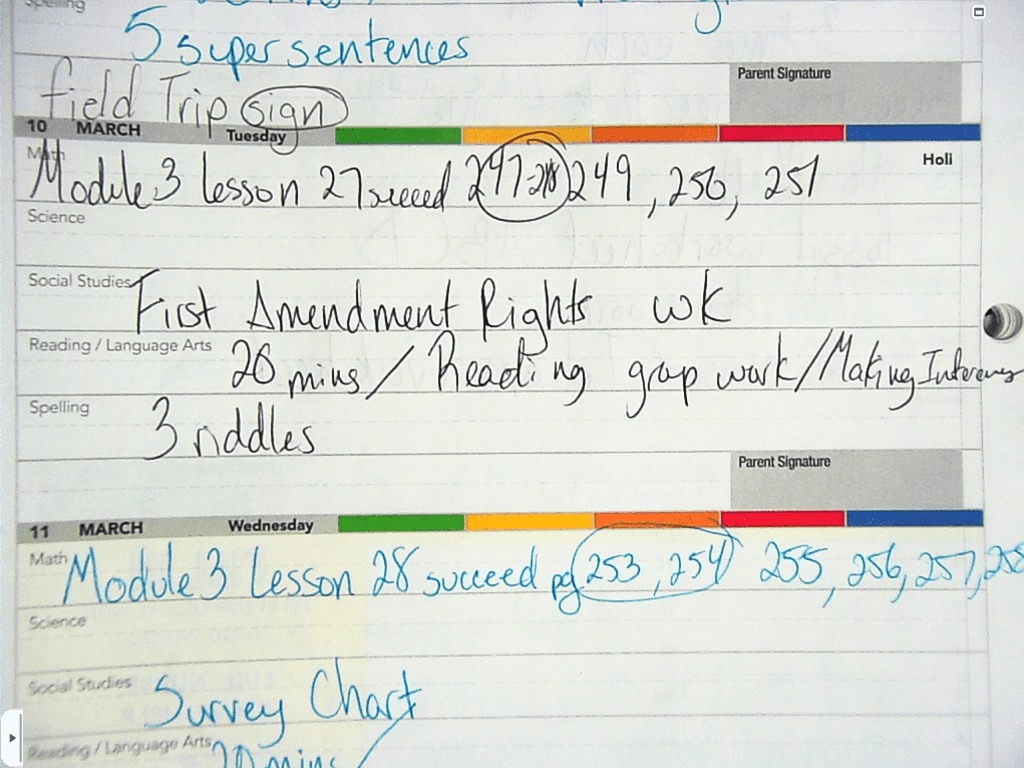 Spelling
5 super sentences
Parent Signature
field Trip sign
10 MARCH Tuesday
Math
Holi
Module 3 lesson 27 succeed 247-248 249, 250, 251
Science
Social Studies
First Amendment Rights wk
Reading / Language Arts
20 mins / Reading group work / Making Inferences
Spelling
3 riddles
Parent Signature
11 MARCH Wednesday
Math
Module 3 Lesson 28 succeed pg 253, 254 255, 256, 257, 258
Science
Social Studies
Survey Chart
Reading / Language Arts
20 mins /